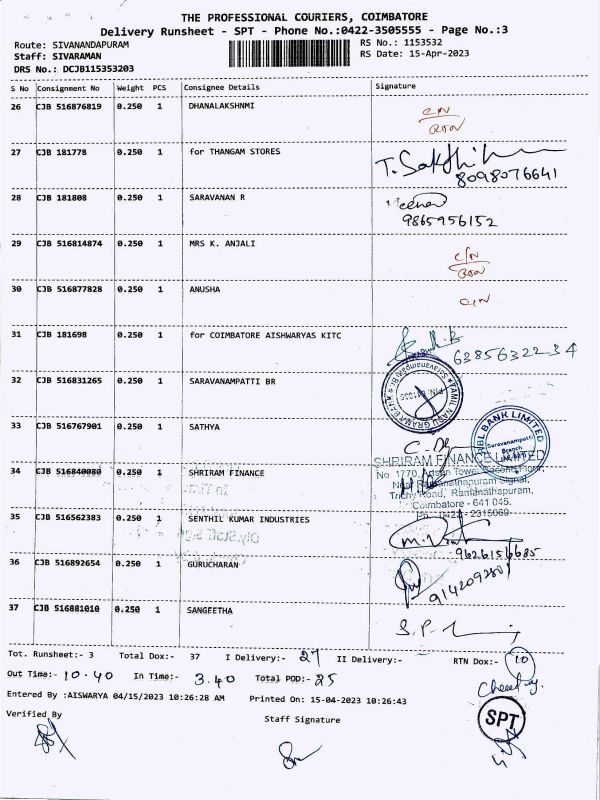 THE PROFESSIONAL COURIERS, COIMBATORE
Delivery Runsheet - SPT - Phone No.:0422-3505555 - Page No.:3
Route: SIVANANDAPURAM RS No.: 1153532
Staff: SIVARAMAN RS Date: 15-Apr-2023
DRS No.: DCJB115353203
S No Consignment No Weight PCS Consignee Details Signature
26 CJB 516876819 0.250 1 DHANALAKSHNMI
27 CJB 181778 0.250 1 for THANGAM STORES
8098076641
28 CJB 181808 0.250 1 SARAVANAN R
9865956152
29 CJB 516814874 0.250 1 MRS K. ANJALI
30 CJB 516877828 0.250 1 ANUSHA
31 CJB 181698 0.250 1 for COIMBATORE AISHWARYAS KITC
6385632234
32 CJB 516831265 0.250 1 SARAVANAMPATTI BR
TAMIL NADU GRAMA BANK
33 CJB 516767901 0.250 1 SATHYA
RBL BANK LIMITED
Saravanampatti
Branch
34 CJB 516840080 0.250 1 SHRIRAM FINANCE
SHRIRAM FINANCE LIMITED
No 1770,
Ramanathapuram Signal,
Trichy Road, Ramanathapuram,
Coimbatore - 641 045.
Ph: 0422 - 2315069
35 CJB 516562383 0.250 1 SENTHIL KUMAR INDUSTRIES
36 CJB 516892654 0.250 1 GURUCHARAN
37 CJB 516881010 0.250 1 SANGEETHA
Tot. Runsheet:- 3 Total Dox:- 37 I Delivery:- 27 II Delivery:- RTN Dox:- 10
Out Time:- 10.40 In Time:- 3.40 Total POD:- 25
Entered By :AISWARYA 04/15/2023 10:26:28 AM Printed On: 15-04-2023 10:26:43
Verified By Staff Signature
SPT